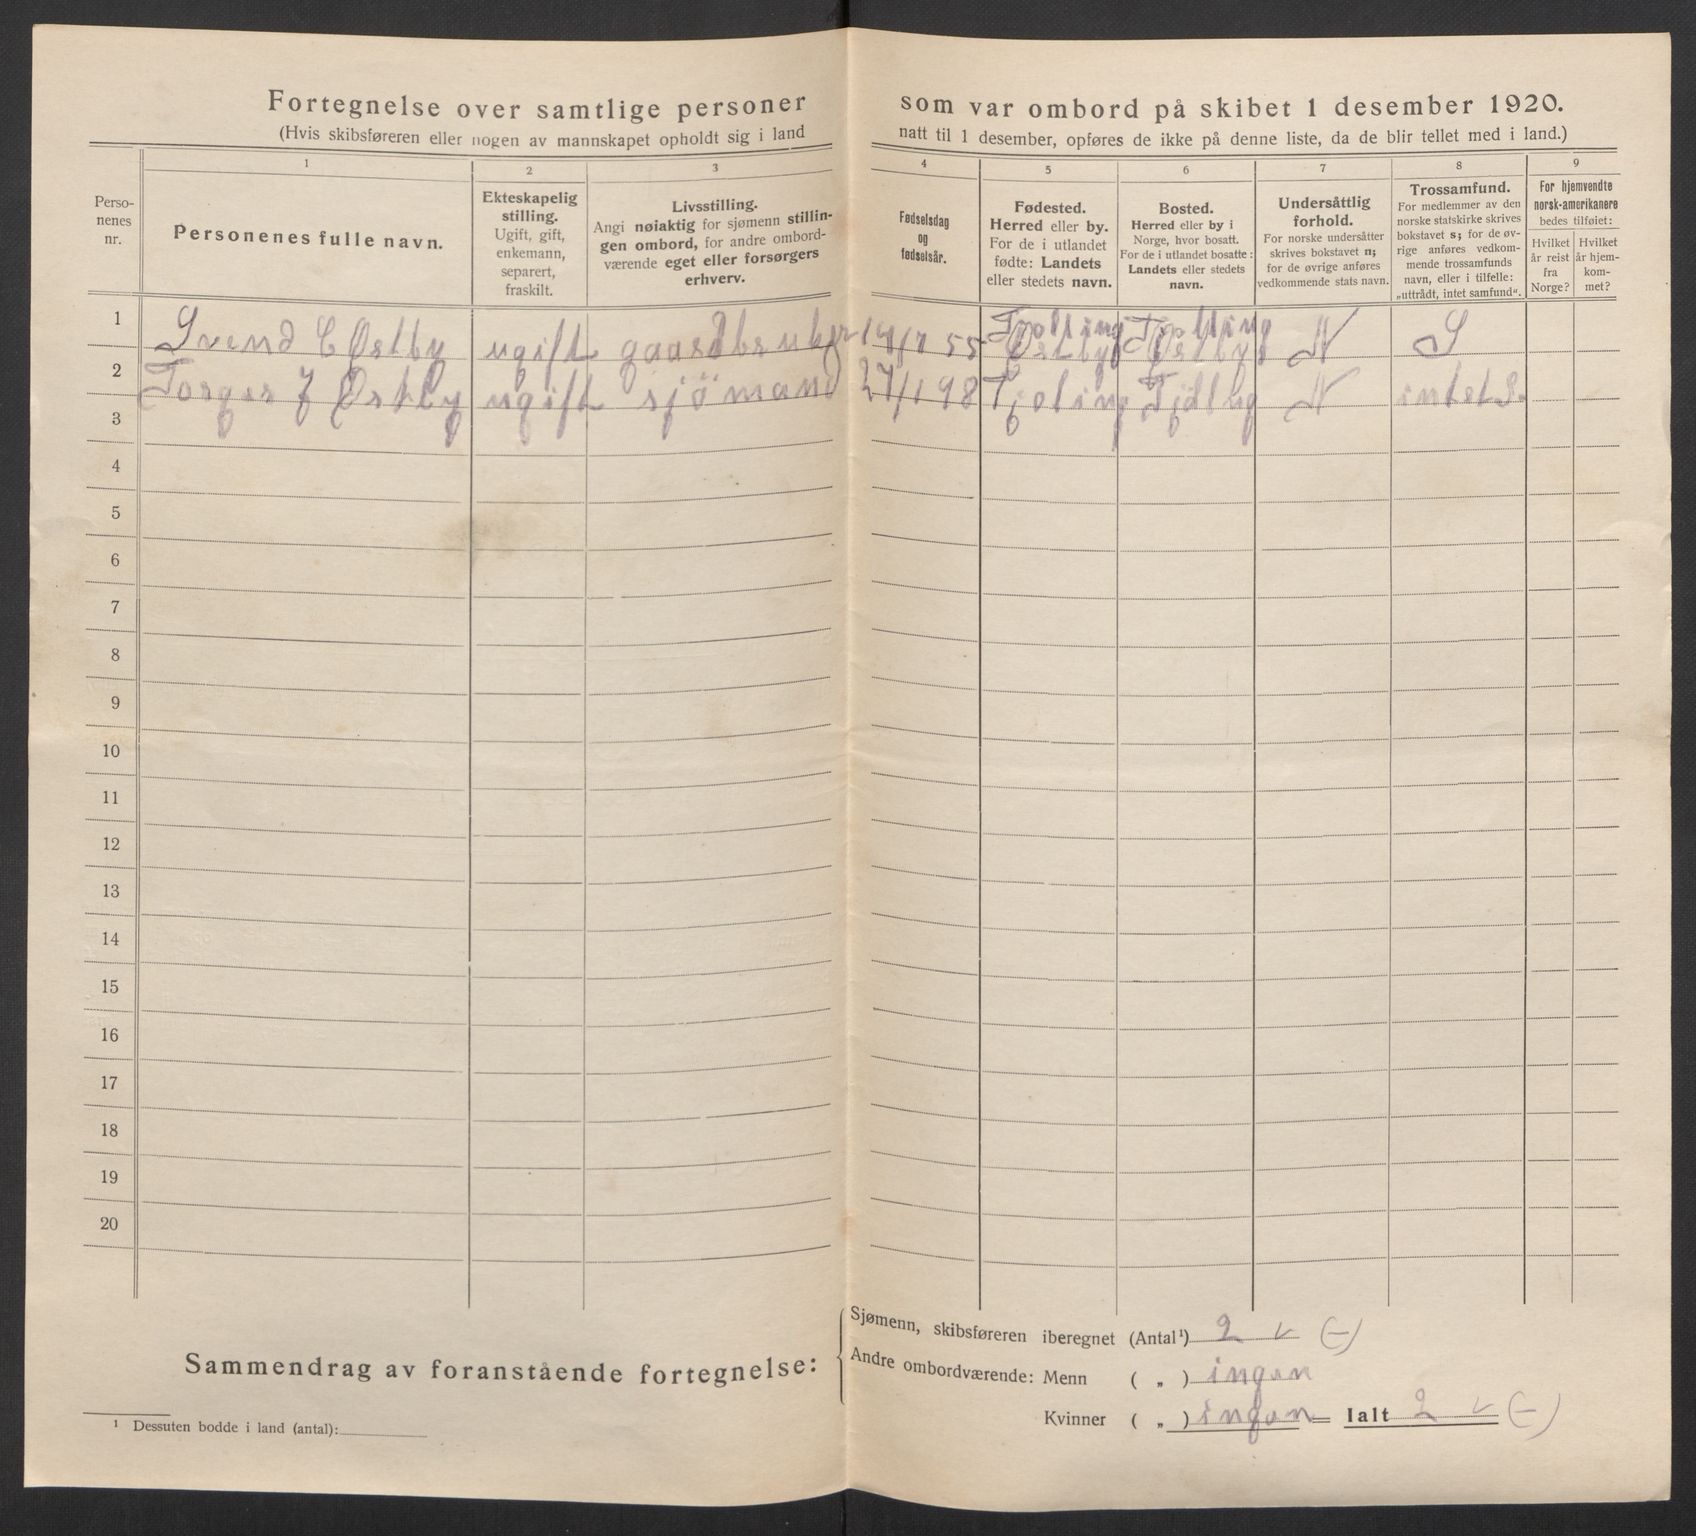 Fortegnelse over samtlige personer som var ombord på skibet 1 desember 1920.
(Hvis skibsføreren eller nogen av mannskapet opholdt sig i land natt til 1 desember, opføres de ikke på denne liste, da de blir tellet med i land.)
Perso-
nenes
nr.
1
Personenes fulle navn.
2
Ekteskapelig
stilling.
Ugift, gift,
enkemann,
separert,
fraskilt.
3
Livsstilling.
Angi nøiaktig for sjømenn stillin-
gen ombord, for andre ombord-
værende eget eller forsørgers
erhverv.
4
Fødselsdag
og
fødselsår.
5
Fødested.
Herred eller by.
For de i utlandet
fødte: Landets
eller stedets navn.
6
Bosted.
Herred eller by i
Norge, hvor bosatt.
For de i utlandet bosatte:
Landets eller stedets
navn.
7
Undersåttlig
forhold.
For norske undersåtter
skrives bokstavet n;
for de øvrige anføres
vedkommende stats navn.
8
Trossamfund.
For medlemmer av den
norske statskirke skrives
bokstavet s; for de øv-
rige anføres vedkom-
mende trossamfunds
navn, eller i tilfelle:
„uttrådt, intet samfund“.
9
For hjemvendte
norsk-amerikanere
bedes tilføiet:
Hvilket
år reist
fra
Norge?
Hvilket
år hjem-
kom-
met?
Tjølling Tjølling
1 Svend C Østby ugift gaardbruker 55 Østby Østby N S
2 Torger J Østby ugift sjömand 27/1 98 Tjøling N intet S.
3
4
5
6
7
8
9
10
11
12
13
14
15
16
17
18
19
20
Sammendrag av foranstående fortegnelse:
Sjømenn, skibsføreren iberegnet (Antal¹) 2 v (-)
Andre ombordværende: Menn ( „ ) ingen
Kvinner ( „ ) ingen Ialt 2 v (-)
¹ Dessuten bodde i land (antal):